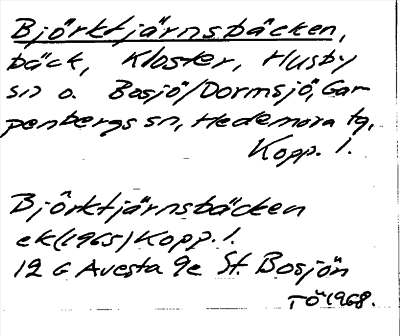 Björktjärnsbäcken,
bäck, Kloster, Husby
sn o. Bosjö/Dormsjö, Gar-
penbergs sn, Hedemora tg,
Kopp. l.
Björktjärnsbäcken
ek (1965) Kopp. l.
12 G Avesta 9e St. Bosjön
TÖ 1968.